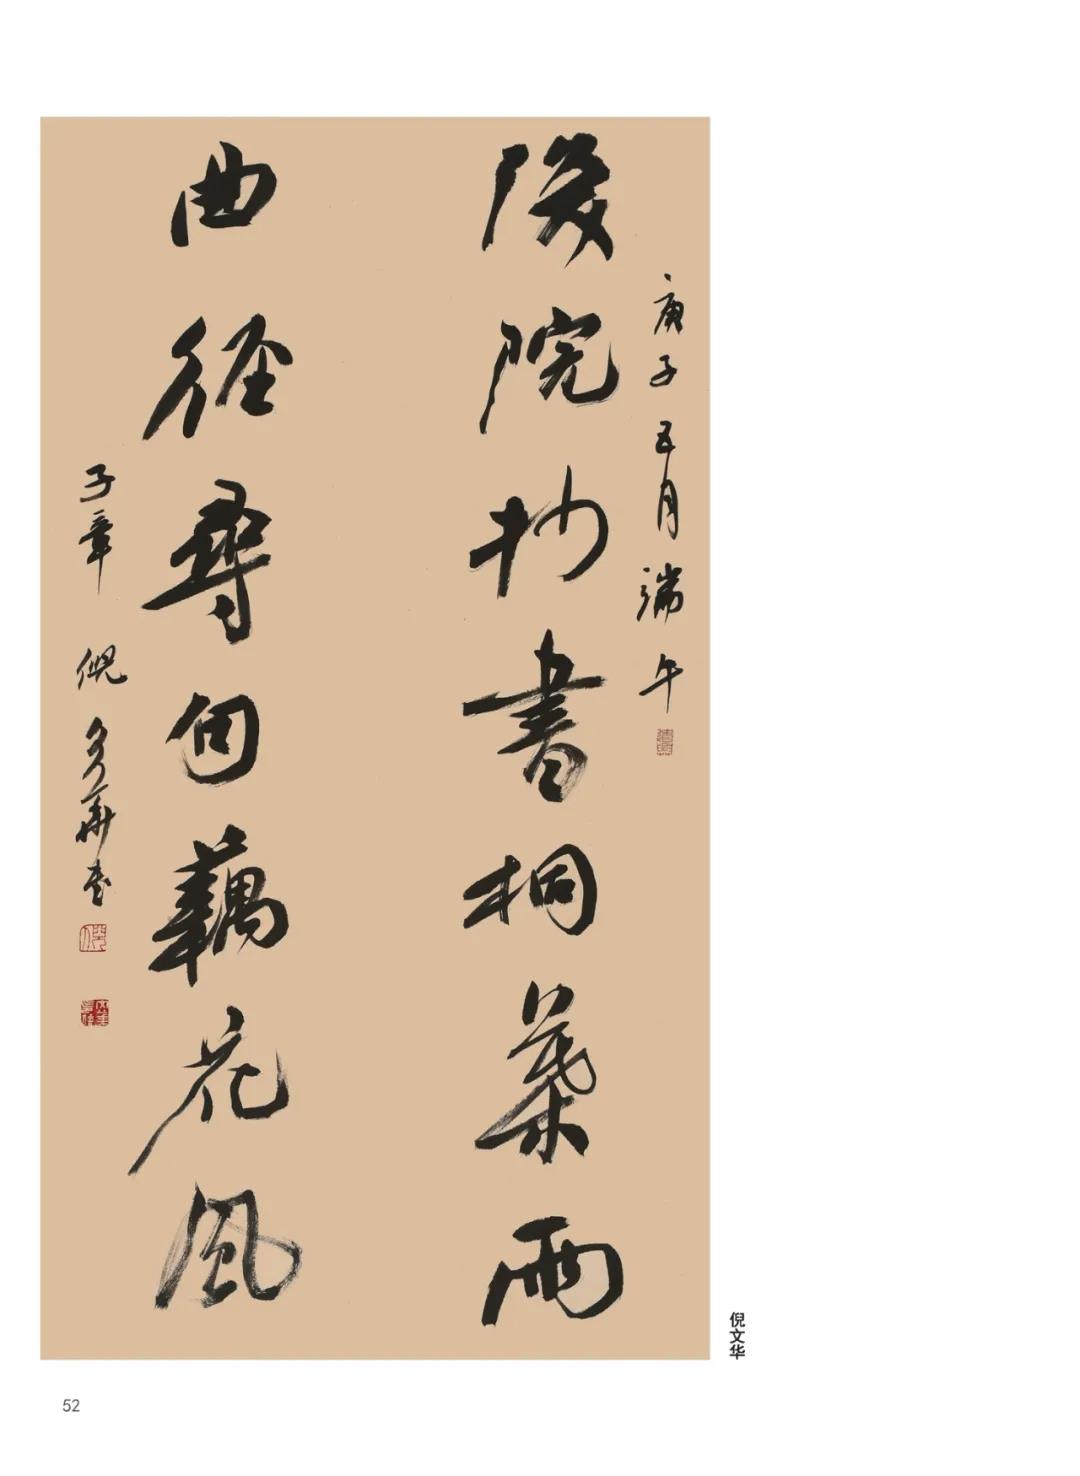 庚子五月端午
後院抄書桐葉雨
曲徑尋句藕花風
子章 倪文華書
倪文华
52